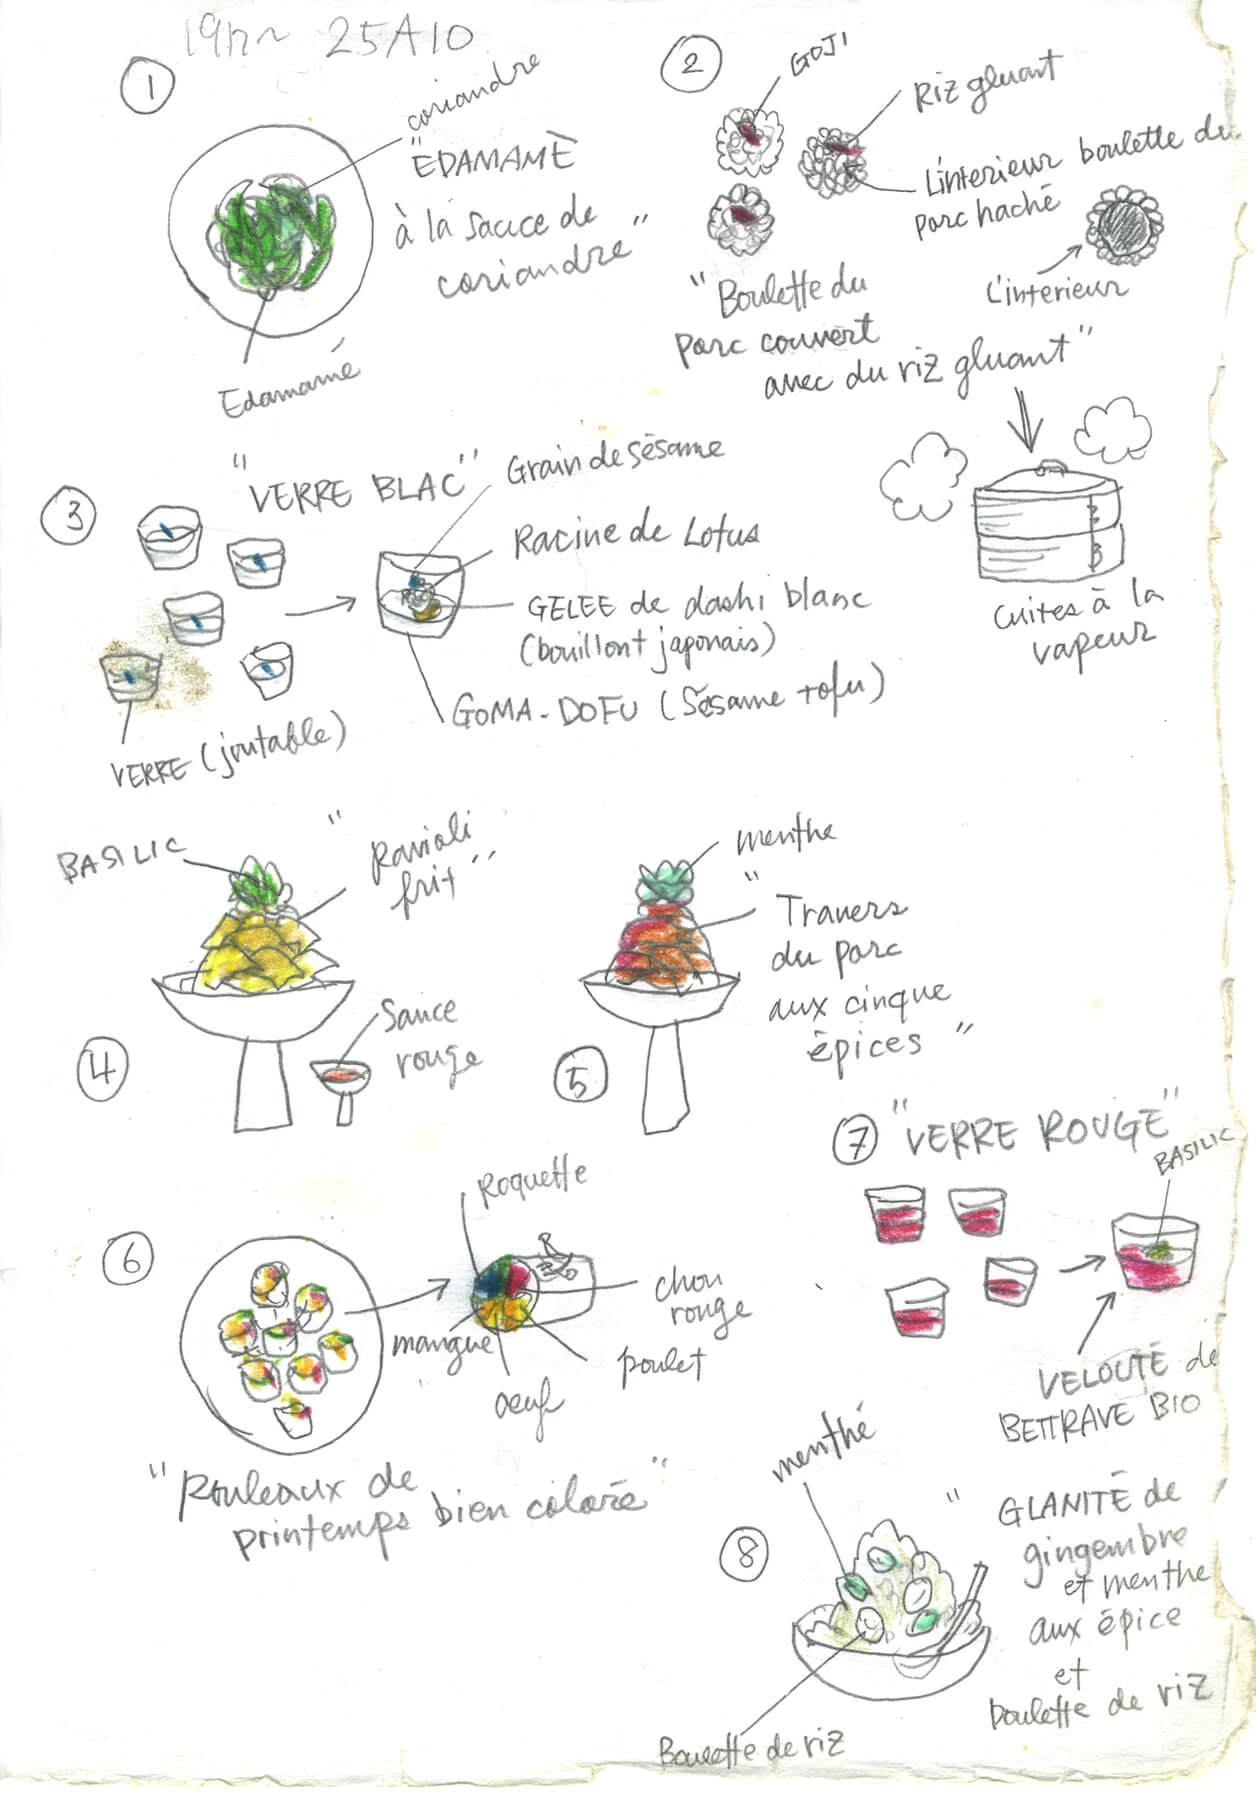 19h~ 25A10
1
coriandre
"EDAMAMÉ
à la sauce de
coriandre"
Edamamé
2
GOJI
Riz gluant
L'interieur boulette du
porc haché
L'intérieur
"Boulette du
porc couvert
avec du riz gluant"
Cuites à la
vapeur
3
"VERRE BLAC"
Grain de sésame
Racine de Lotus
GELEE de dashi blanc
(bouillont japonais)
GOMA-DOFU (Sésame tofu)
VERRE (joutable)
4
BASILIC
"Ravioli
frit"
Sauce
rouge
5
menthe
"Travers
du porc
aux cinque
épices"
6
Roquette
chou
rouge
mangue
poulet
oeuf
"Rouleaux de
printemps bien coloré"
7
"VERRE ROUGE"
BASILIC
VELOUTÉ de
BETTRAVE BIO
8
menthé
"GLANITÉ de
gingembre
et menthe
aux épice
et
boulette de riz
Boulette de riz